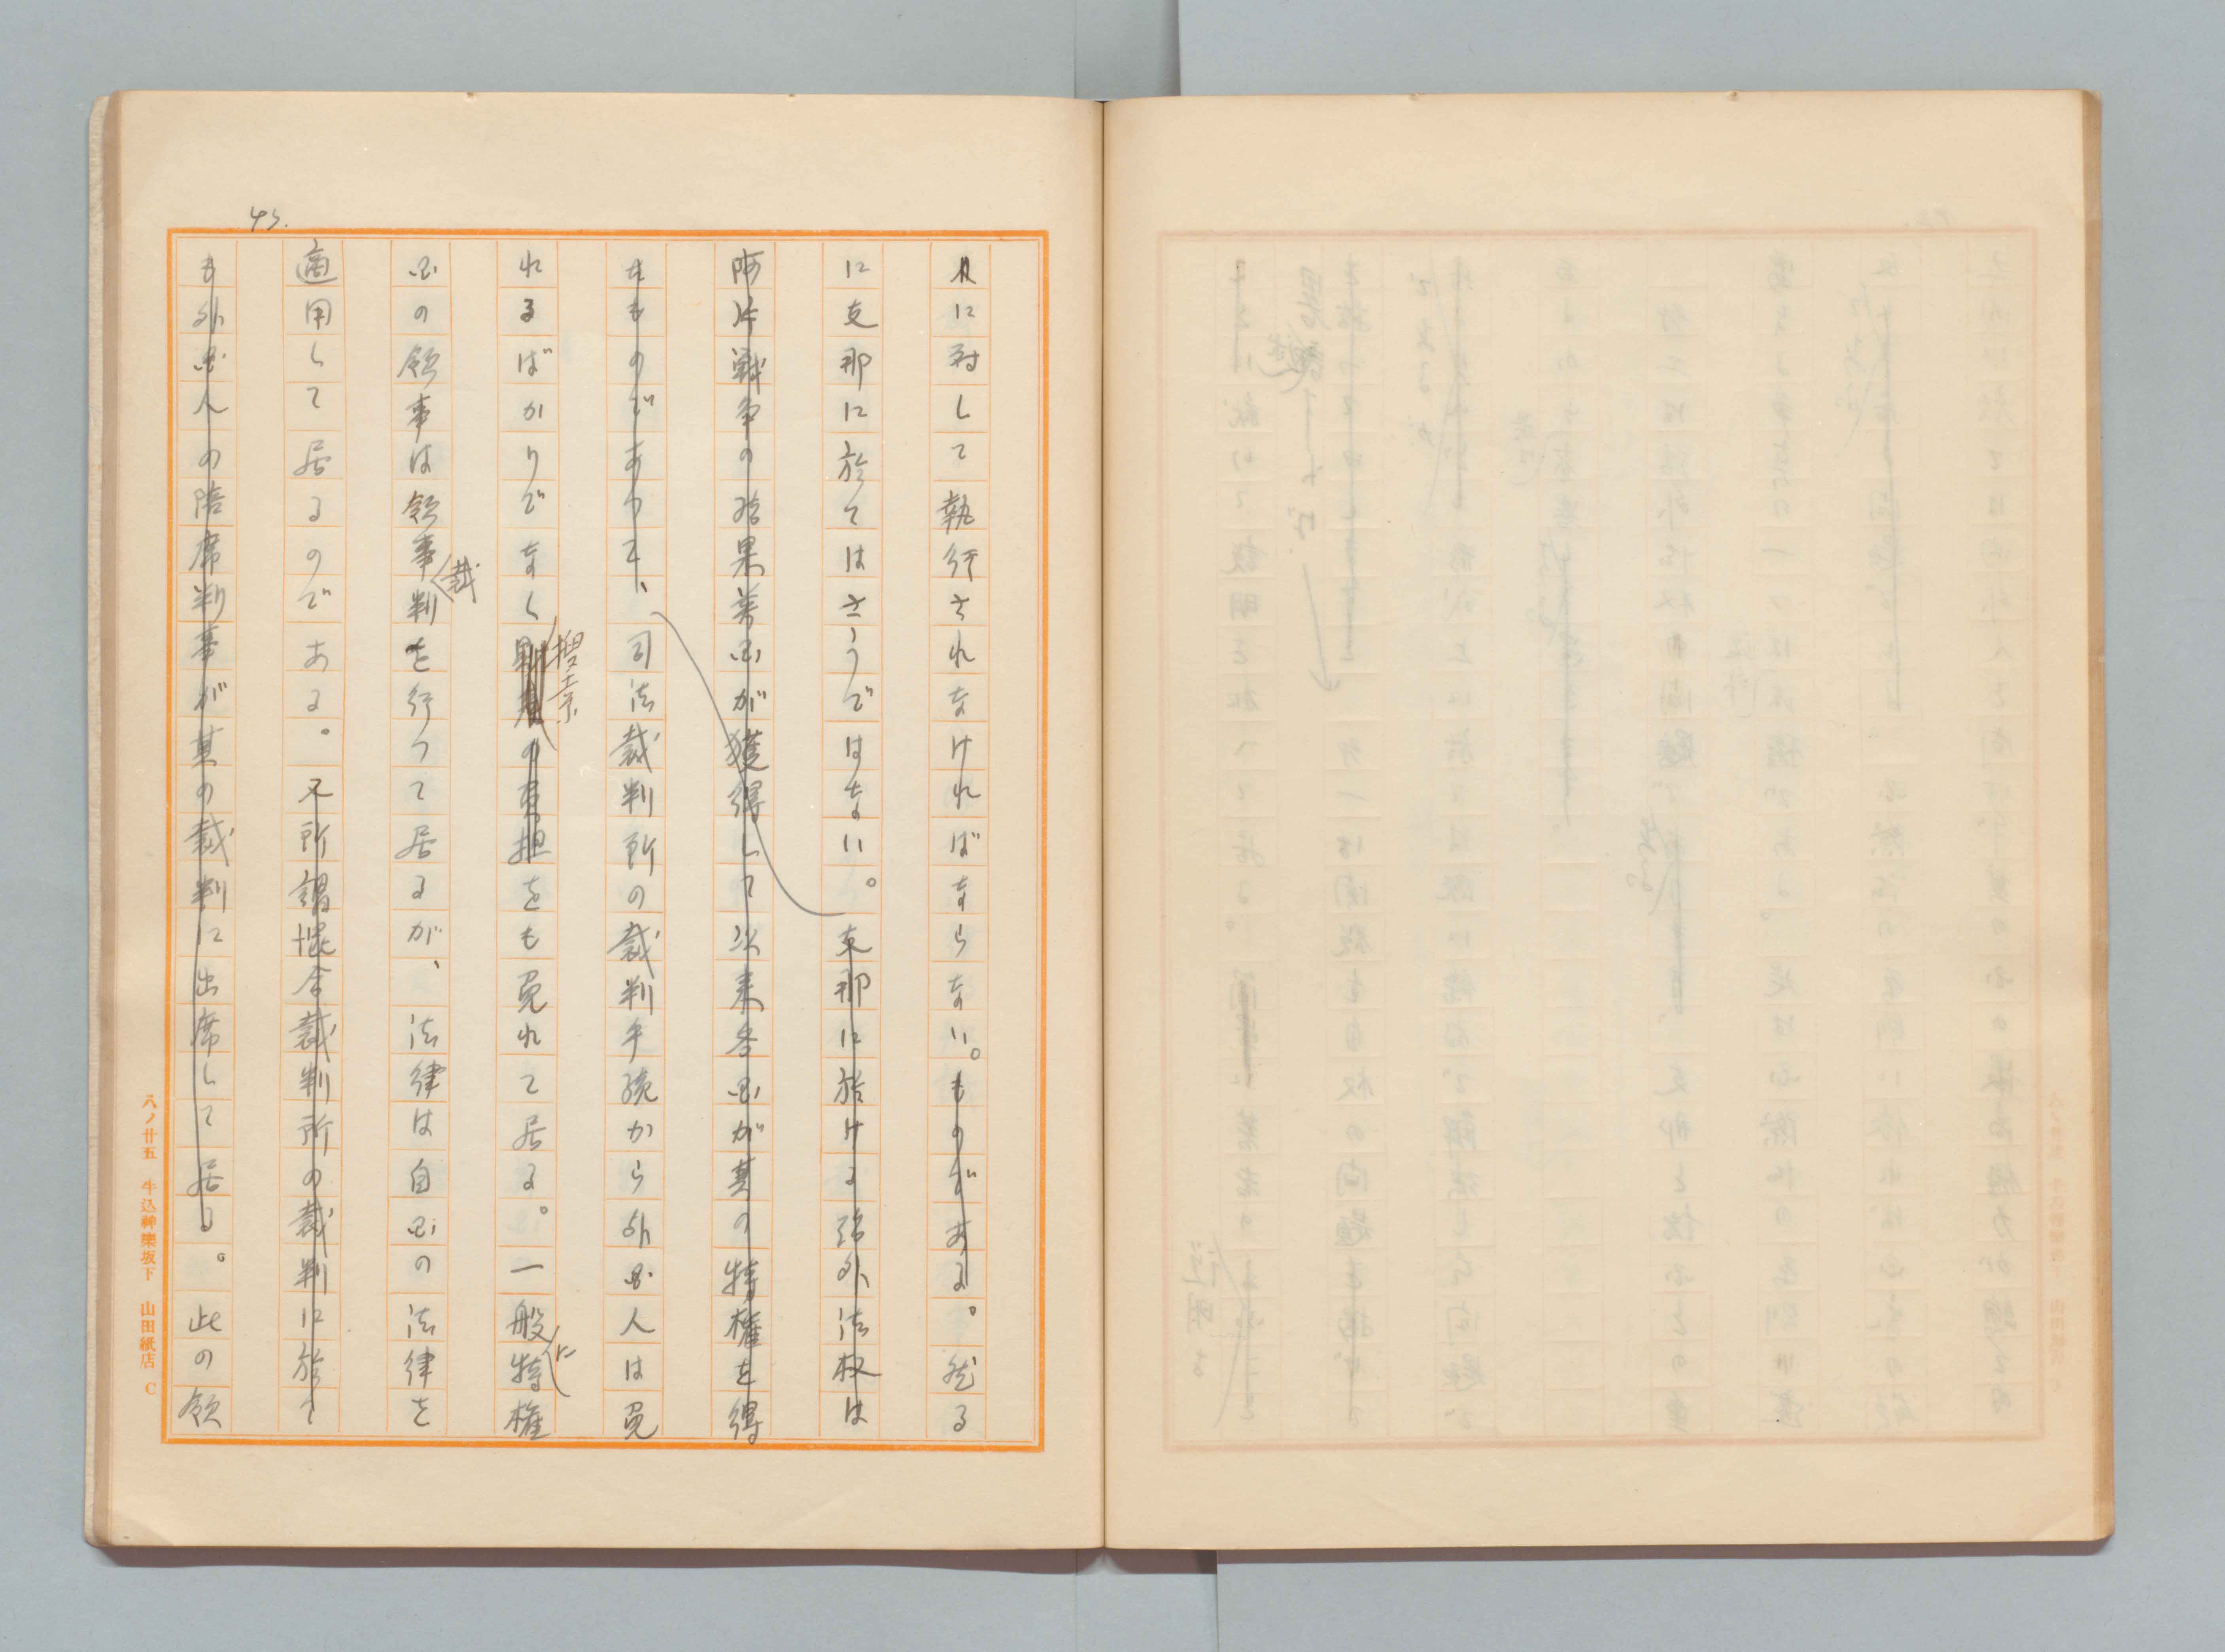 43.
人に対して執行されなければならない。ものである。然る
に支那に於てはさうではない。支那に於ける治外法权は
阿片戦争の結果英国が獲得して以来各国が其の特権を得
たものであつて、司法裁判所の裁判手続から外国人は免
れるばかりでなく捜索の負担をも免れて居る。一般に特権
国の領事は領事裁判を行つて居るが、法律は自国の法律を
適用して居るのである。又所謂混合裁判所の裁判に於て
も外国人の陪席判事が其の裁判に出席して居る。此の領
八ノ廿五 牛込神樂坂下 山田紙店 C